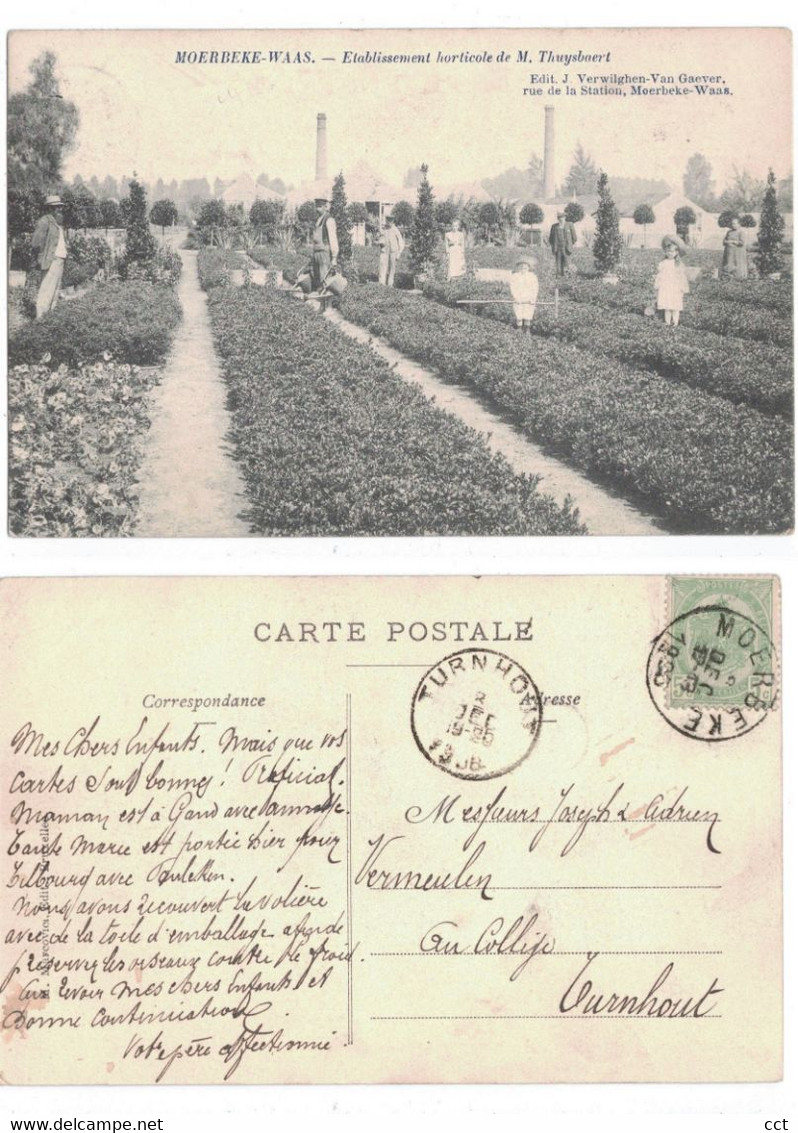 MOERBEKE-WAAS. — Etablissement horticole de M. Thuysbaert
Edit. J. Verwilghen-Van Gaever,
rue de la Station, Moerbeke-Waas.
CARTE POSTALE
Correspondance
Adresse
TURNHOUT
2
DEC
MOERBEKE
DEC
Mes Chers Enfants. Mais que vos
Cartes sont bonnes!
Maman est à Gand avec
Tante Marie est partie hier pour
Tilbourg avec
Nous avons recouvert la volière
avec de la toile d'emballage afin de
préserver les oiseaux contre le froid.
Au revoir mes chers Enfants et
Bonne Continuation
Votre père affectionné
Messieurs Joseph & Adrien
Vermeulen
Au Collège
Turnhout
cct